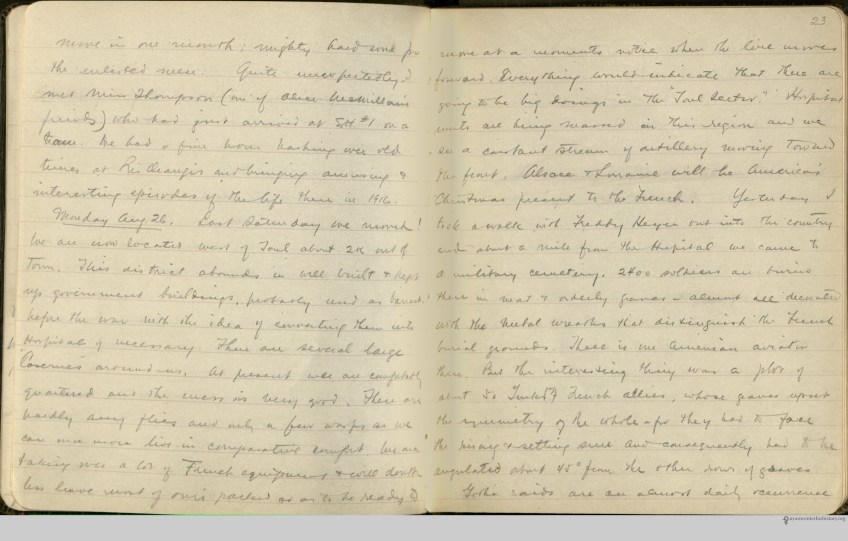 move in one month; mighty hard work for
the enlisted men. Quite unexpectedly I
met Miss Thompson (one of Alice McMillans
friends) who had just arrived at SH #1 on a
team. We had a fine hour hashing over old
times at and bringing amusing &
interesting episodes of the life there in 1916.
Monday Aug 26. Last Saturday we moved!
We are now located west of Toul about 2K out of
Town. This district abounds in well built & kept
up government buildings, probably used as
before the war with the idea of converting them into
Hospitals if necessary. There are several large
Casernes around us. At present we are comfortably
quartered and the mess is very good. There are
hardly any flies and only a few wasps so we
can once more live in comparative comfort. We are
taking over a lot of French equipment & will doubt
less leave most of ours packed so as to be ready to
23
move at a moments notice when the line moves
forward. Everything would indicate that there are
going to be big doings in the "Toul Sector." Hospital
units are being massed in this region and we
see a constant stream of artillery moving toward
the front. Alsace & Lorraine will be America's
Christmas present to the French. Yesterday I
took a walk with Freddy out into the country
and about a mile from the Hospital we came to
a military cemetery. 2400 soldiers are buried
there in neat & orderly graves - almost all decorated
with the metal wreaths that distinguish the French
burial grounds. There is one American aviator
there. But the interesting thing was a plot of
about 50 French allies, whose graves upset
the symmetry of the whole - for they had to face
the rising & setting sun and consequently had to be
angulated about 45° from the other rows of graves
Gotha raids are an almost daily occurrence